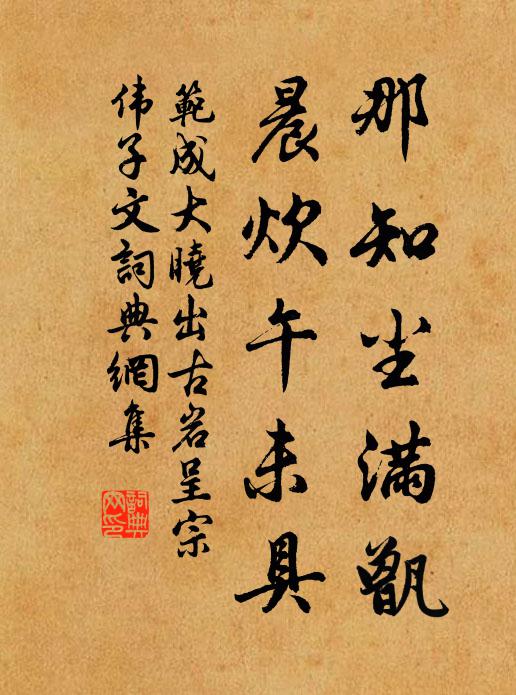 那知尘满甑
晨炊午未具
範成大曉出古岩呈宗
伟子文詞典網集
詞典
网印